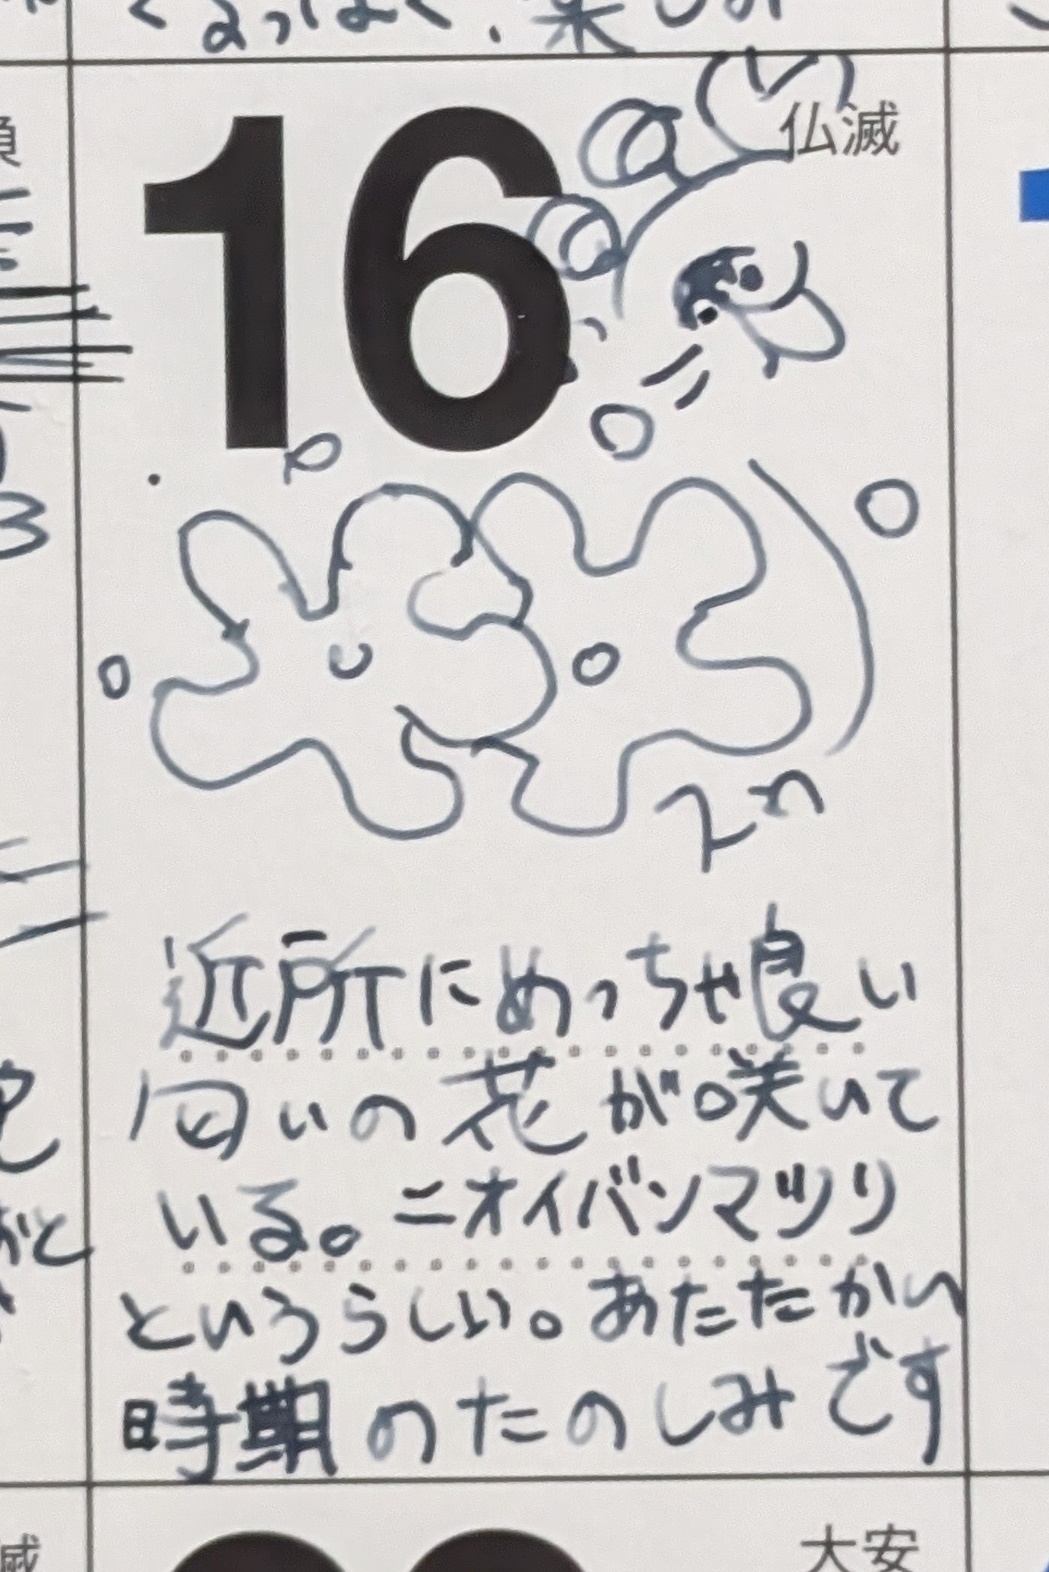 16
仏滅
近所にめっちゃ良い
匂いの花が咲いて
いる。ニオイバンマツリ
というらしい。あたたかい
時期のたのしみです
大安